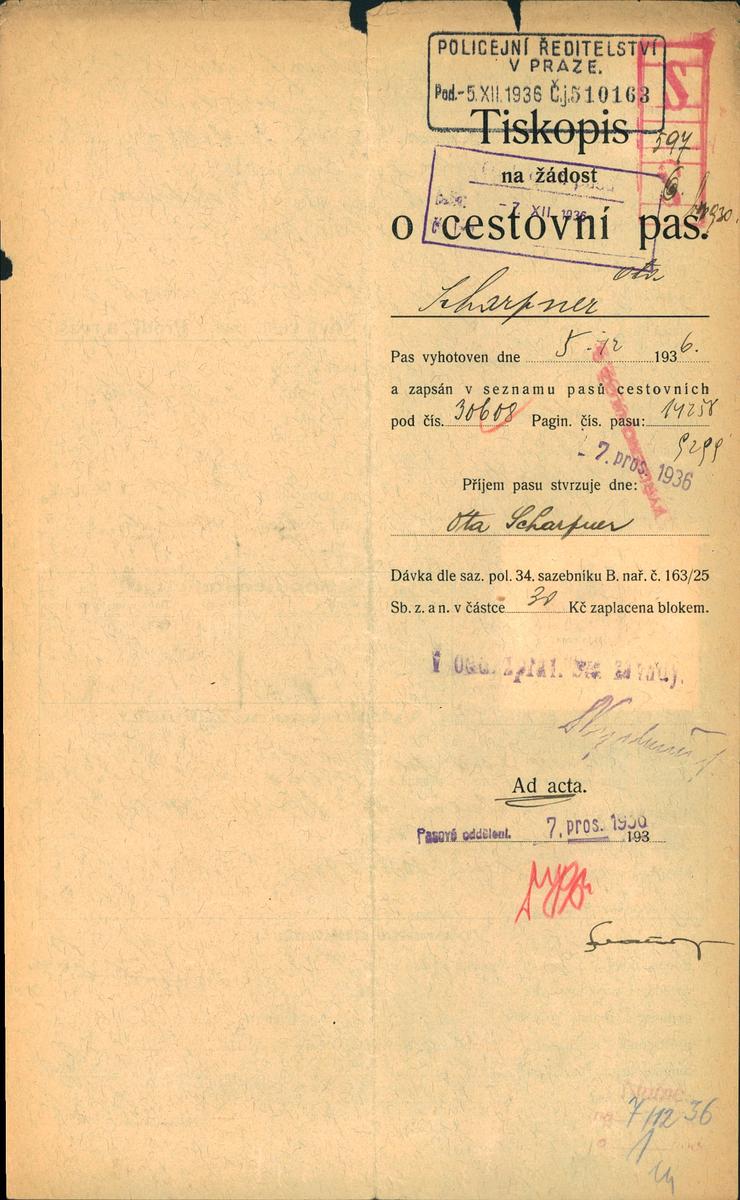 POLICEJNÍ ŘEDITELSTVÍ
V PRAZE.
Pod. -5.XII.1936 Č.j. 510163
S
Tiskopis
597
na žádost
6.
-7. XII. 1936
o cestovní pas.
Ota
Scharfner
Pas vyhotoven dne 5. 12 1936.
a zapsán v seznamu pasů cestovních
pod čís. 30608 Pagin. čís. pasu: 14258
9299
-7. pros. 1936
Příjem pasu stvrzuje dne:
Ota Scharfner
Dávka dle saz. pol. 34. sazebníku B. nař. č. 163/25
Sb. z. a n. v částce 30 Kč zaplacena blokem.
Ad acta.
Pasové oddělení. 7. pros. 1936
193
7/12 36